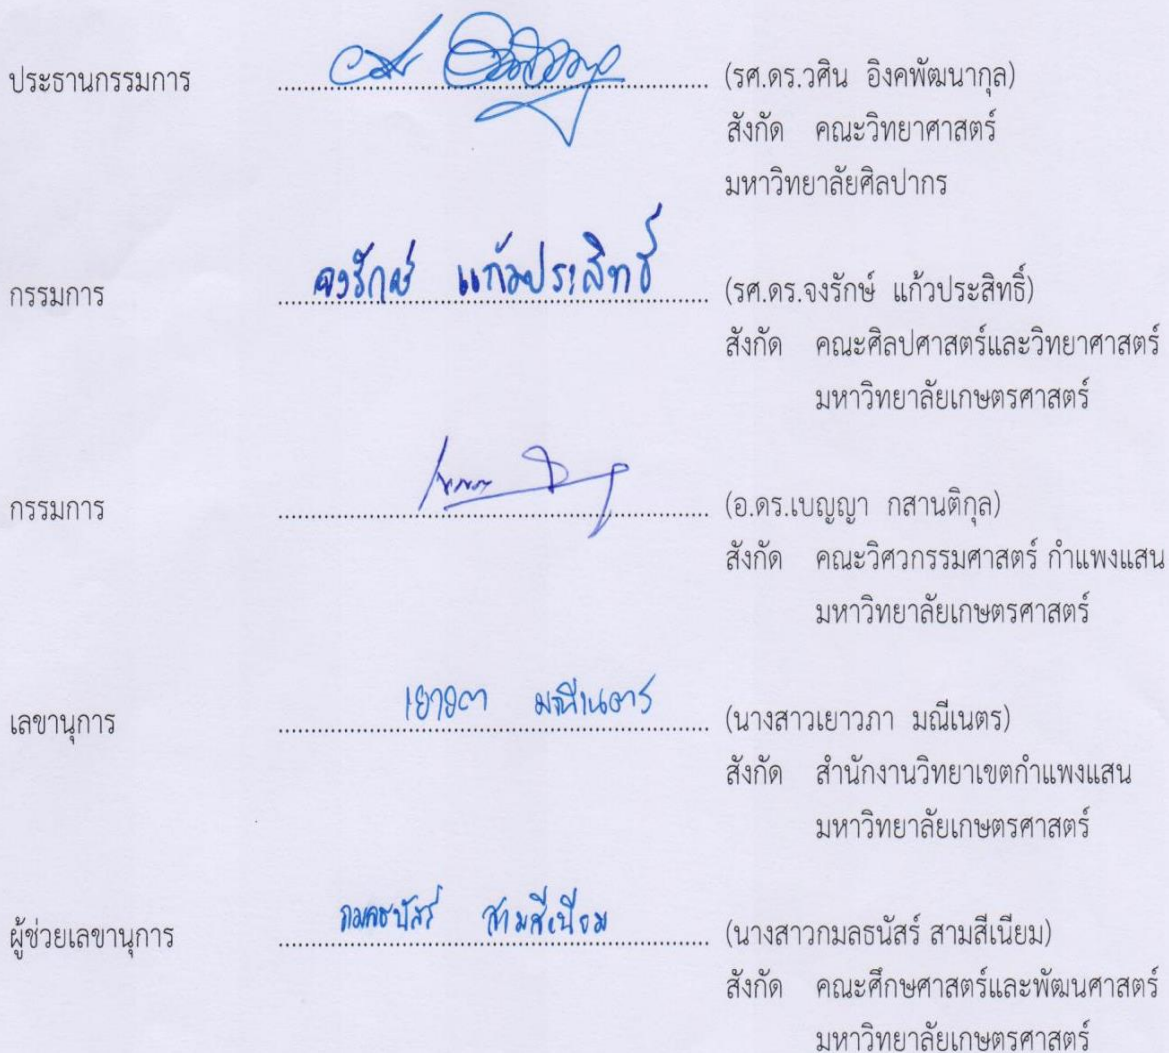 ประธานกรรมการ ........................................ (รศ.ดร.วศิน อิงคพัฒนากุล)
สังกัด คณะวิทยาศาสตร์
มหาวิทยาลัยศิลปากร
กรรมการ จงรักษ์ แก้วประสิทธิ์ (รศ.ดร.จงรักษ์ แก้วประสิทธิ์)
สังกัด คณะศิลปศาสตร์และวิทยาศาสตร์
มหาวิทยาลัยเกษตรศาสตร์
กรรมการ ........................................ (อ.ดร.เบญญา กสานติกุล)
สังกัด คณะวิศวกรรมศาสตร์ กำแพงแสน
มหาวิทยาลัยเกษตรศาสตร์
เลขานุการ เยาวภา มณีเนตร (นางสาวเยาวภา มณีเนตร)
สังกัด สำนักงานวิทยาเขตกำแพงแสน
มหาวิทยาลัยเกษตรศาสตร์
ผู้ช่วยเลขานุการ กมลธนัสร์ สามสีเนียม (นางสาวกมลธนัสร์ สามสีเนียม)
สังกัด คณะศึกษาศาสตร์และพัฒนศาสตร์
มหาวิทยาลัยเกษตรศาสตร์